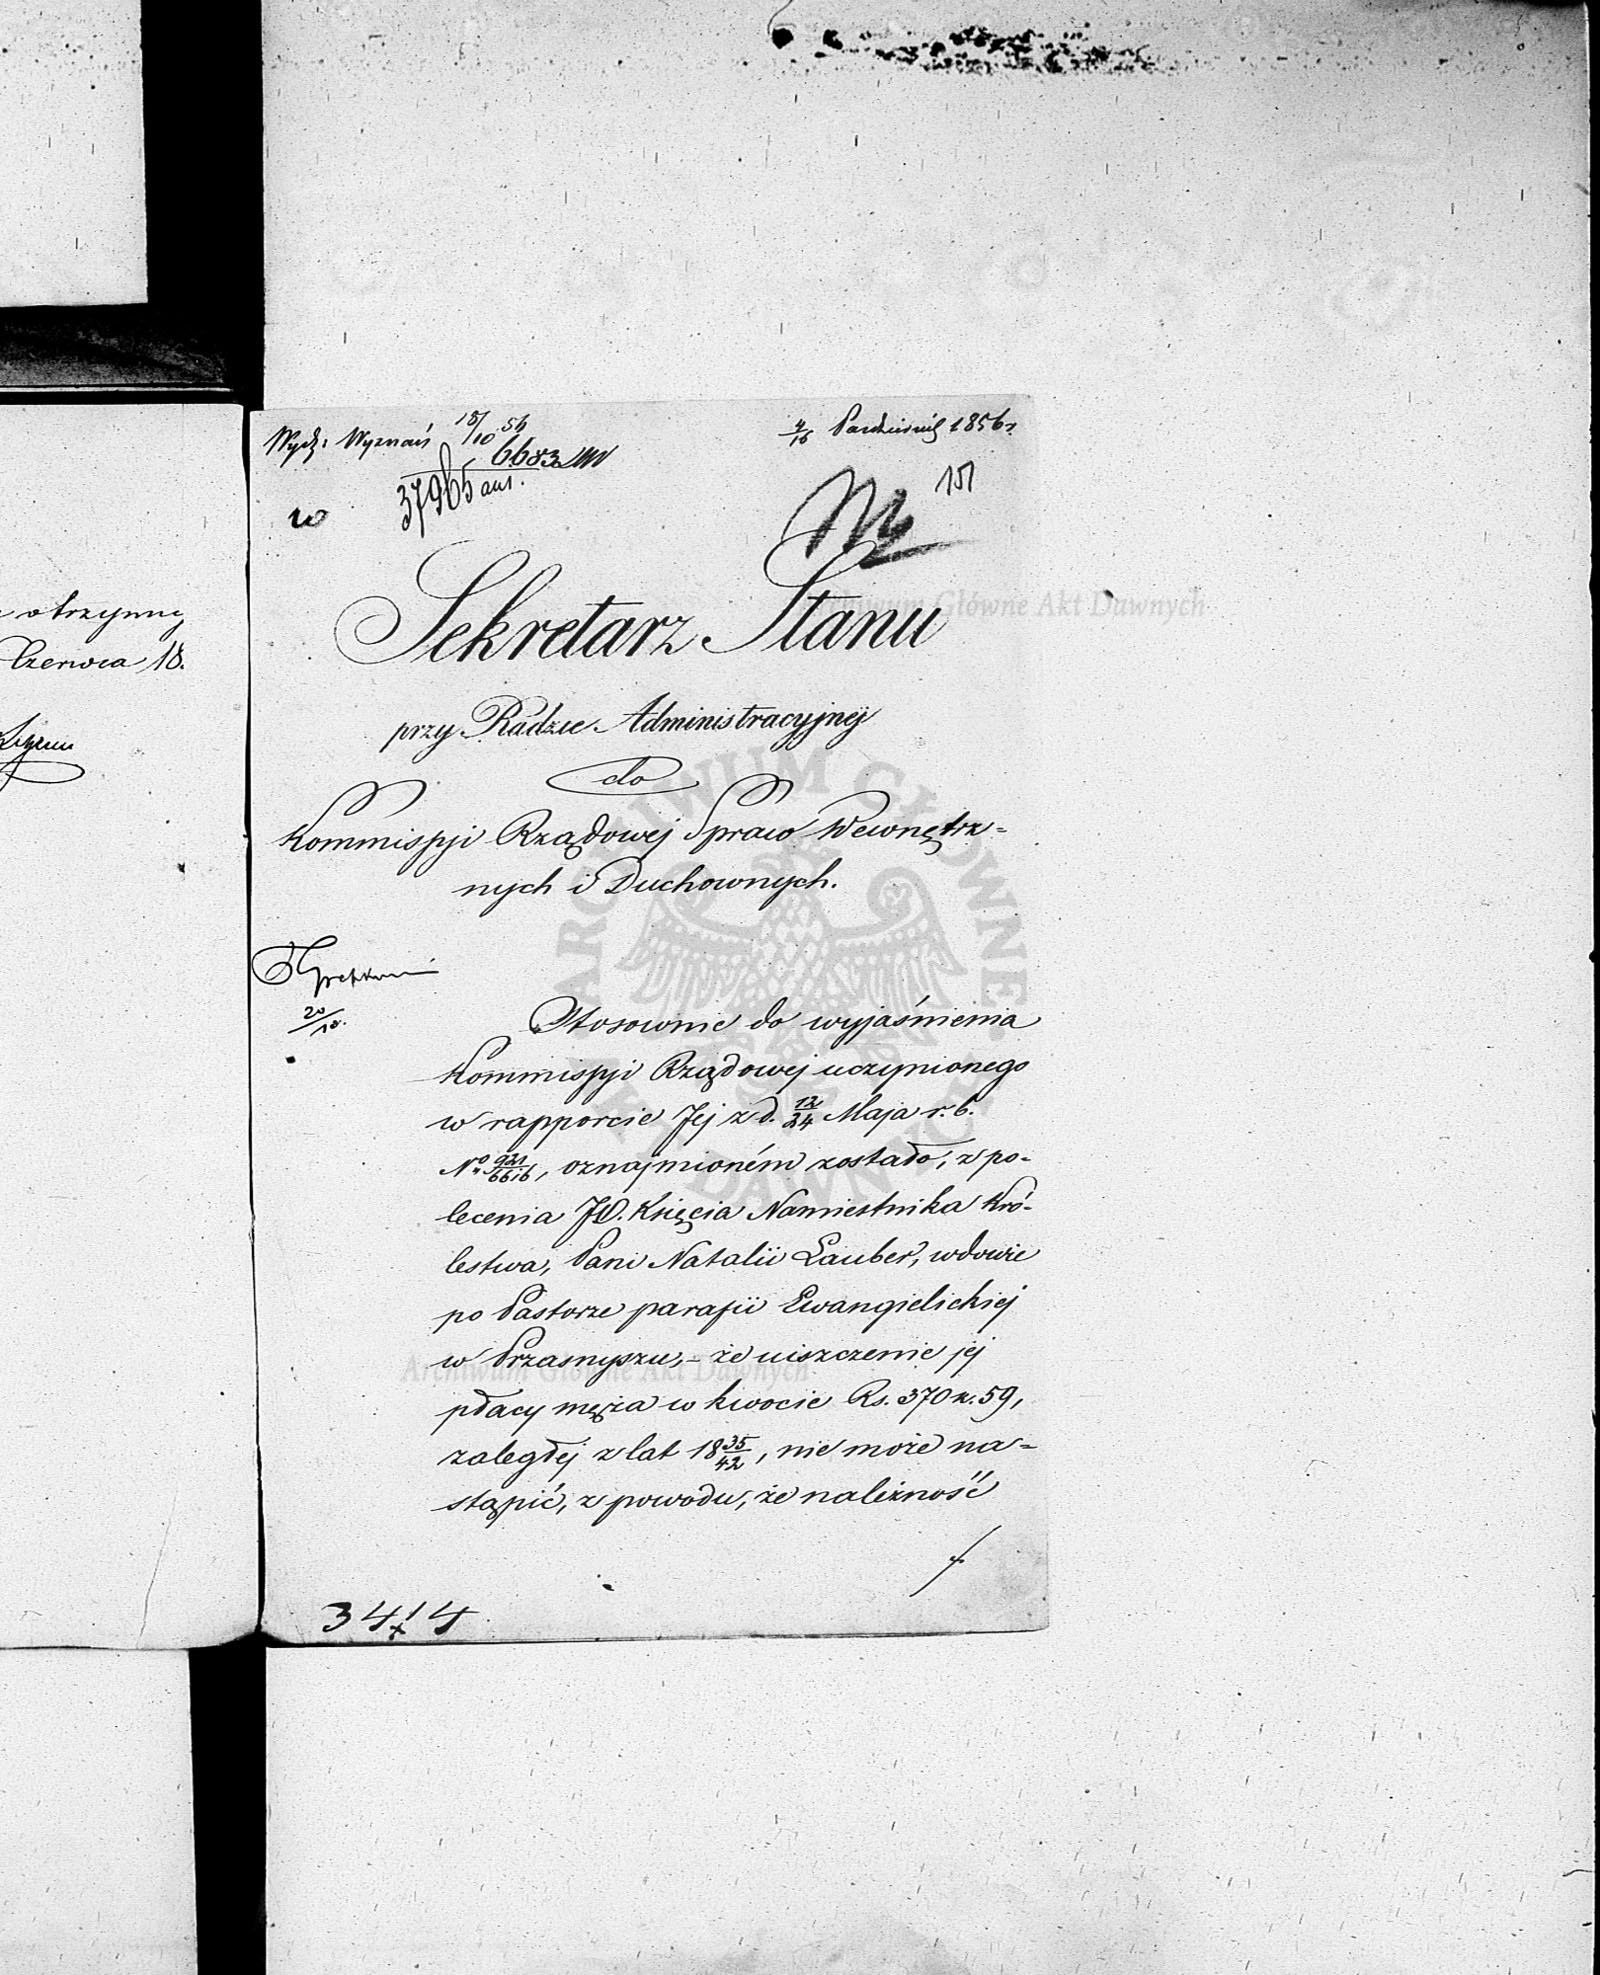 otrzymuję
Czerwca 18.
Wydz: Wyznań 18/10 56
6683
37965
4/16 Październik 1856 r.
151
Sekretarz Stanu
przy Radzie Administracyjnej
do
Kommissyi Rządowej Spraw Wewnętrz=
nych i Duchownych.
20/10.
Stosownie do wyjaśnienia
Kommissyi Rządowej uczynionego
w rapporcie Jej z d. 12/24 Maja r. b.
No 921/6616, oznajmioném zostało, z po-
lecenia JO. Księcia Namiestnika Kró-
lestwa, Pani Natalii Lauber, wdowie
po Pastorze parafii Ewangielickiej
w Przasnyszu, – że uiszczenie jej
płacy męża w kwocie Rs. 370 k. 59,
zaległej z lat 18 35/42, nie może na=
stąpić, z powodu, że należność
3414
Archiwum Główne Akt Dawnych
Archiwum Główne Akt Dawnych
ARCHIWUM GŁÓWNE AKT DAWNYCH W WARSZAWIE